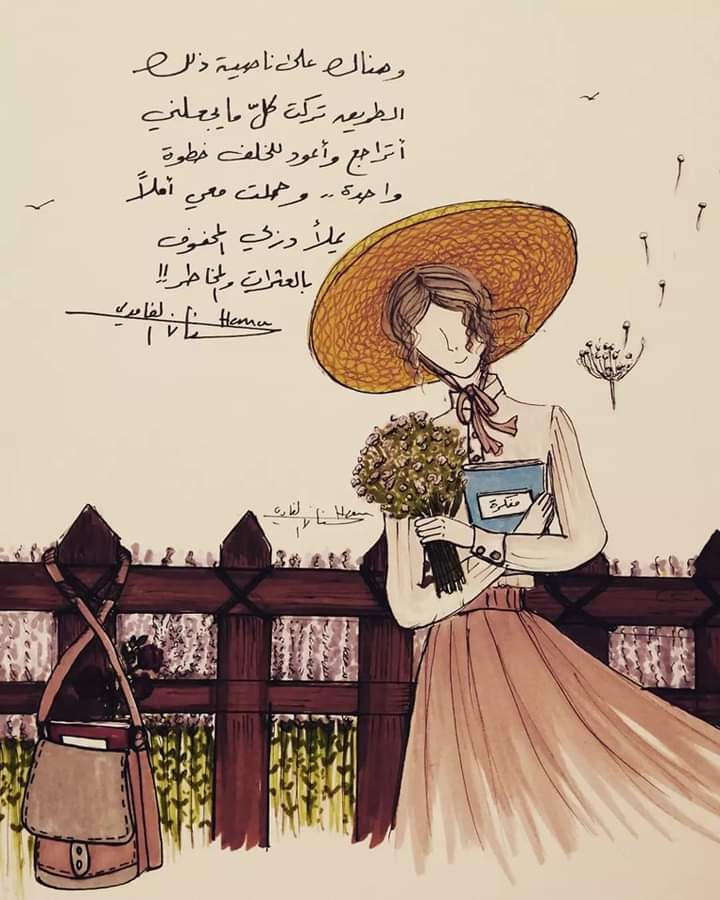 وهناك على ناصية ذلك
الطريق تركت كلّ ما يجعلني
أتراجع وأعود للخلف خطوة
واحدة .. وحملت معي أملاً
يملأ دربي المحفوف
بالعثرات والمخاطر !!
Hana
مفكرة
Hana